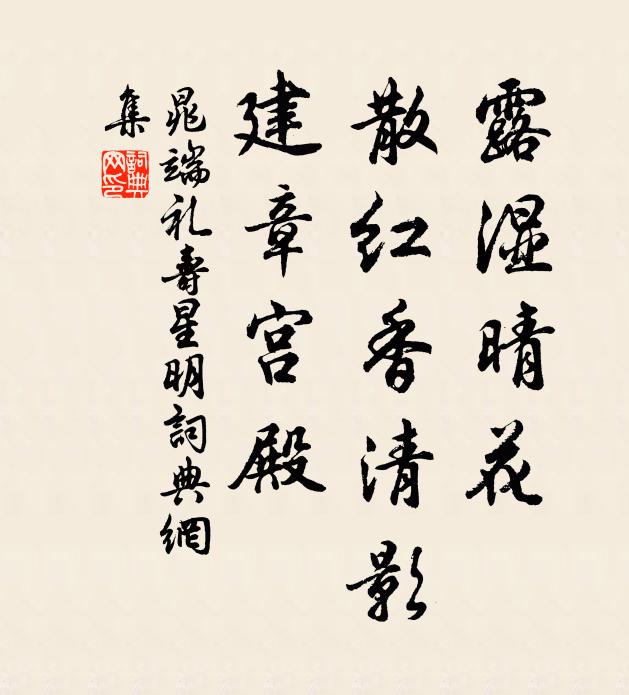 露湿晴花
散红香清影
建章宫殿
晁端礼寿星明詞典網
集
詞典
网印